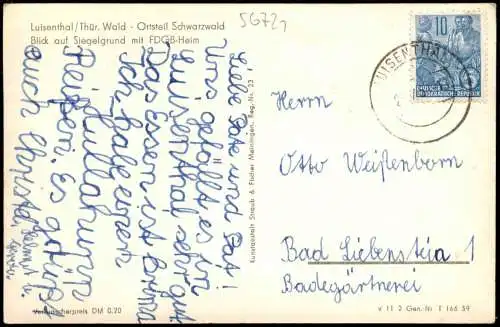 Luisenthal/Thür. Wald - Ortsteil Schwarzwald
Blick auf Siegelgrund mit FDGB-Heim
5672
Liebe Pate und Pat!
Uns gefällt es in
Luisenthal sehr gut
Das Essen ist prima
Ich habe einen
Hullahupp
Reifen. Es grüßt
euch Christa,
Verbraucherpreis DM 0,20
Kunstanstalt Straub & Fischer Meiningen, Reg.-Nr. 23
10
DEUTSCHE
DEMOKRATISCHE REPUBLIK
LUISENTHAL
Herrn
Otto Weißenborn
Bad Liebenstein 1
Badegärtnerei
V 11 2 Gen.-Nr. T 166 59